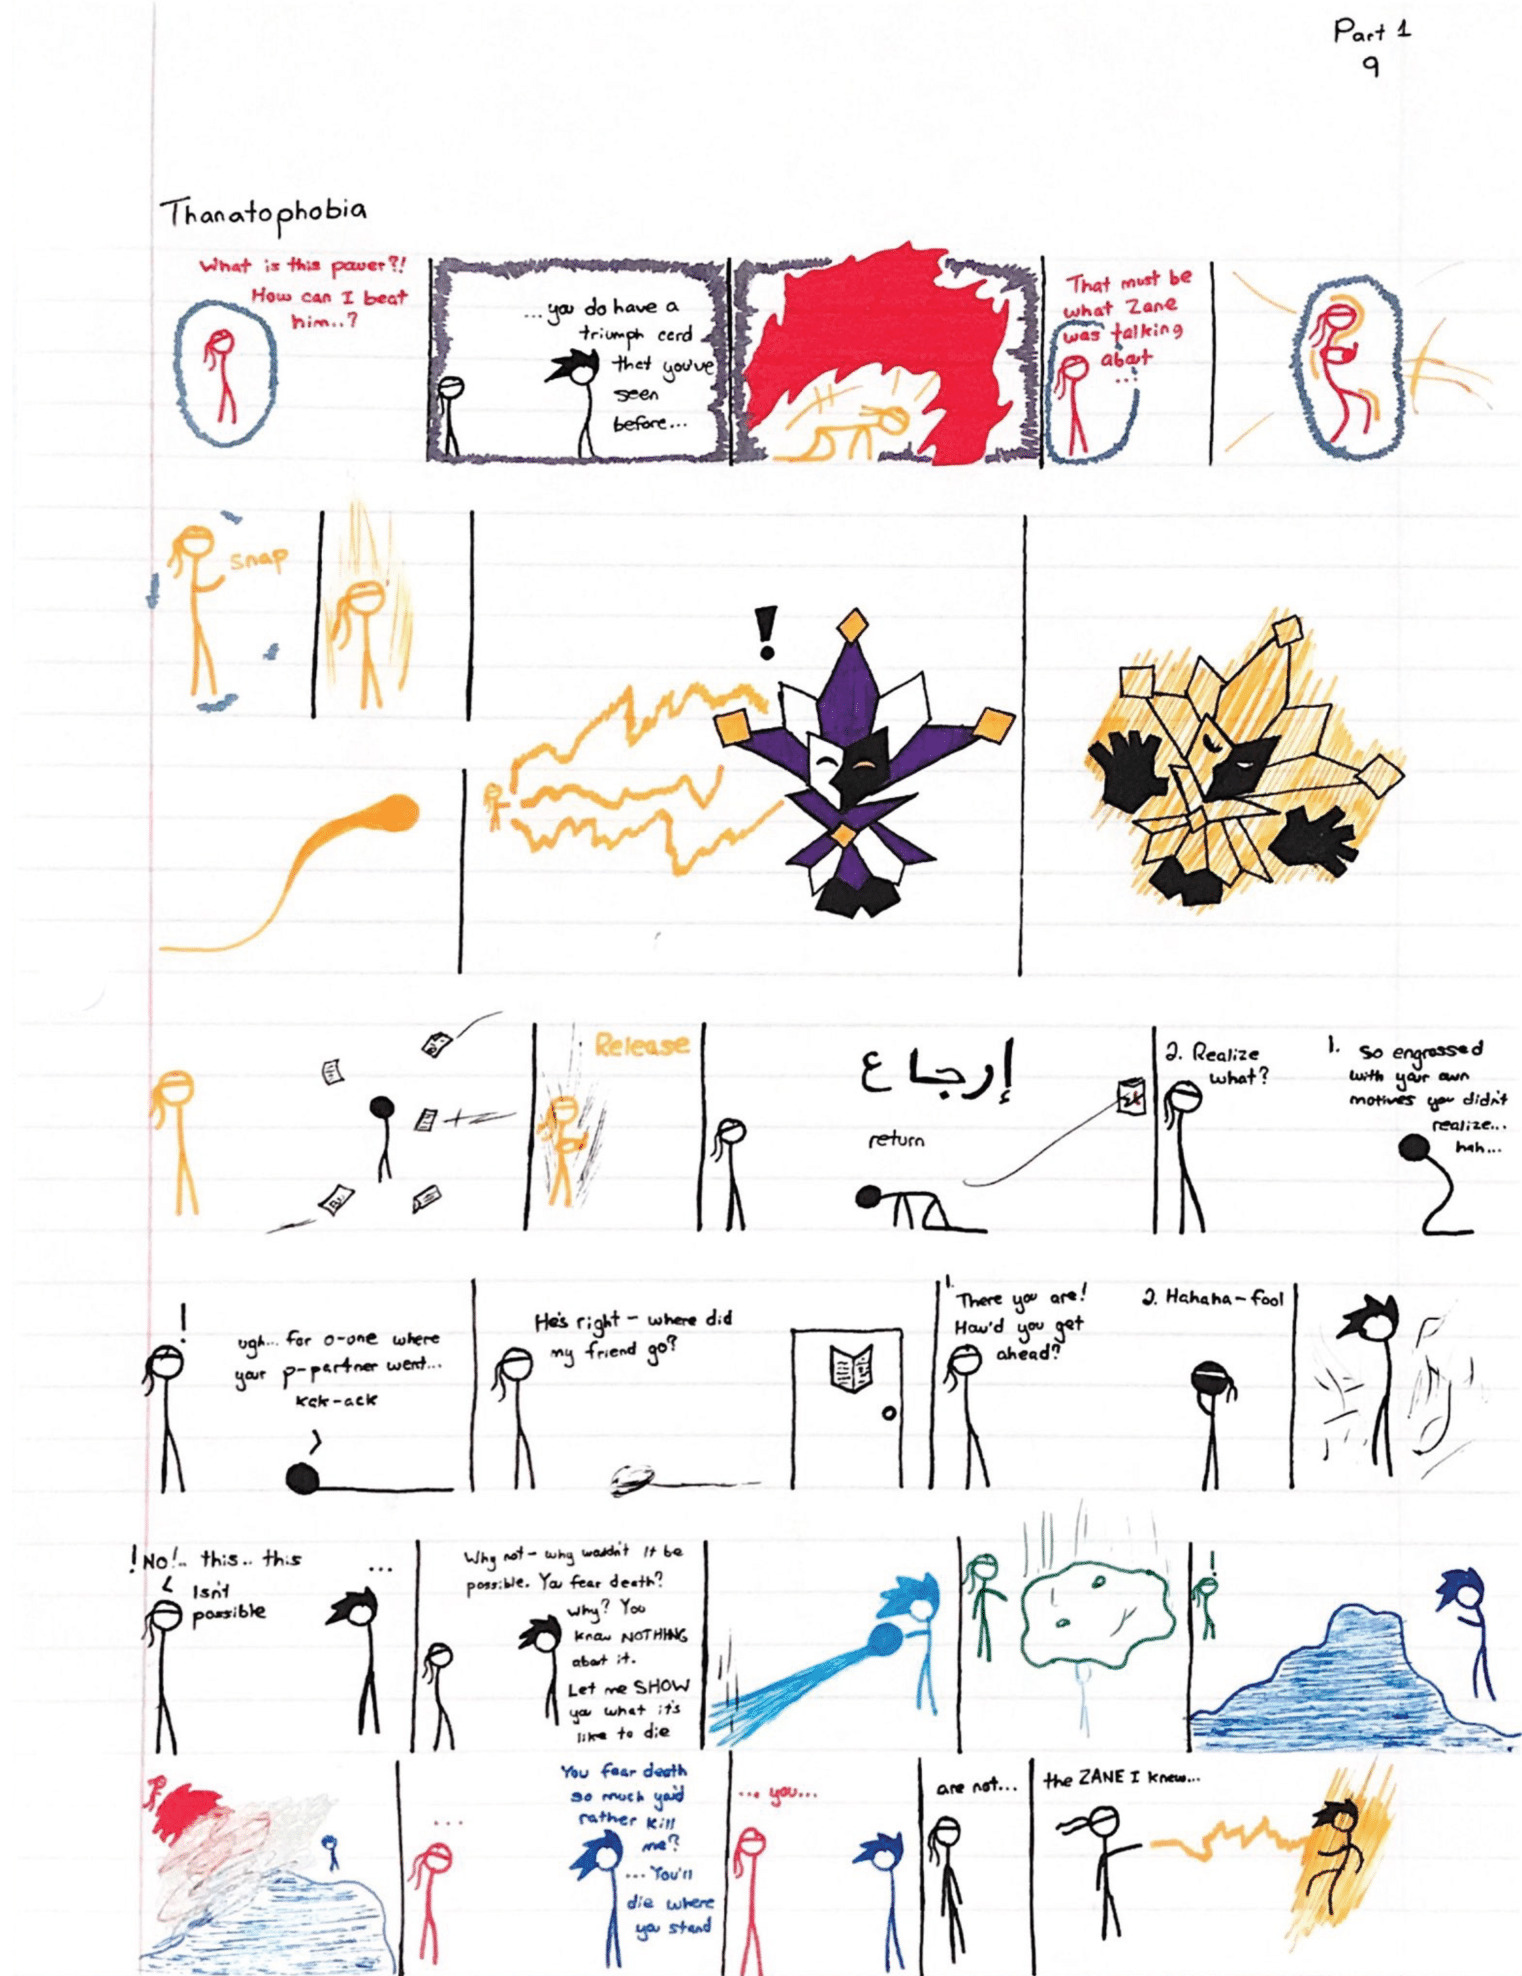 Part 1
9
Thanatophobia
What is this power?!
How can I beat
him..?
...you do have a
triumph card
that you've
seen
before...
That must be
what Zane
was talking
about
...
snap
!
Release
إرجاع
return
2. Realize
what?
1. So engrossed
with your own
motives you didn't
realize...
hah...
!
ugh... for o-one where
your p-partner went...
kak-ack
He's right - where did
my friend go?
1.
There you are!
How'd you get
ahead?
2. Hahaha - fool
! No!.. this.. this
Isn't
possible
...
Why not - why wouldn't it be
possible. You fear death?
Why? You
know NOTHING
about it.
Let me SHOW
you what it's
like to die
!
...
You fear death
so much you'd
rather kill
me?
... You'll
die where
you stand
... you...
are not...
the ZANE I knew...